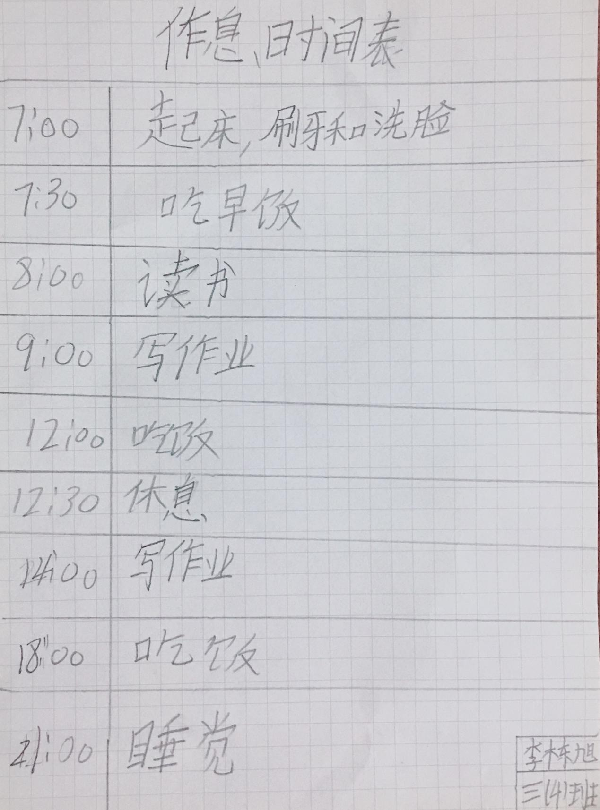 作息时间表
7:00 起己床,刷牙和洗脸
7:30 吃早饭
8:00 读书
9:00 写作业
12:00 吃饭
12:30 休息
14:00 写作业
18:00 吃饭
21:00 睡觉
李栋旭
三(4)班